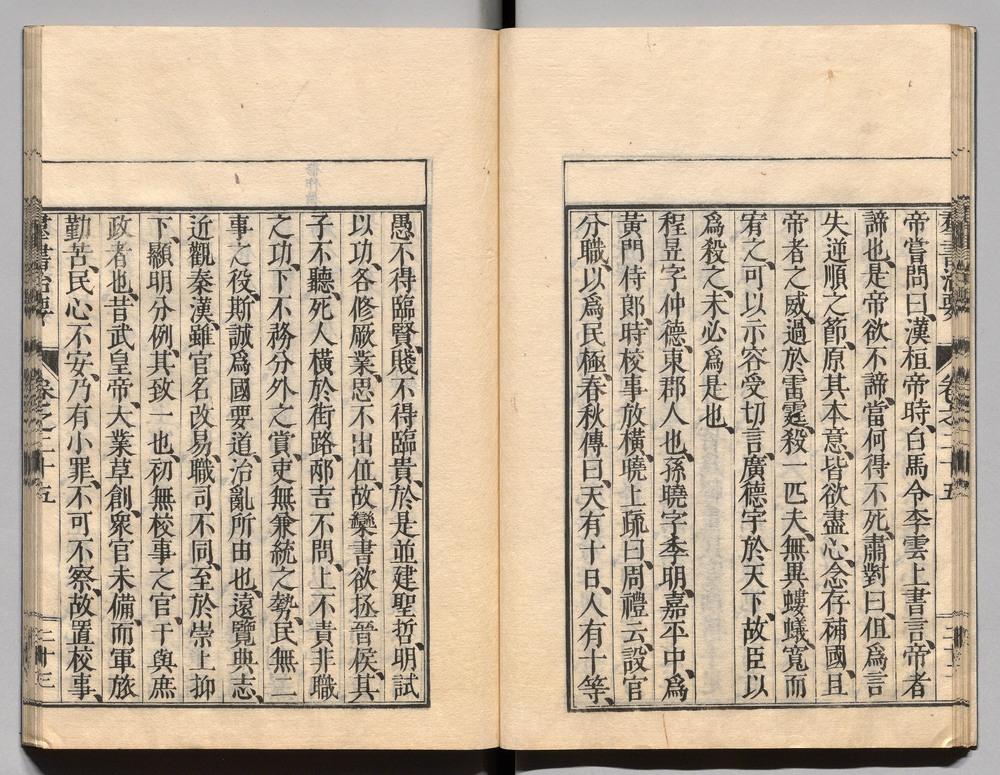 群書治要 卷之二十五 二十二
帝嘗問曰、漢桓帝時、白馬令李雲上書言、帝者
諦也、是帝欲不諦、當何得不死、肅對曰、但爲言
失逆順之節、原其本意、皆欲盡心、念存補國、且
帝者之威、過於雷霆、殺一匹夫、無異螻蟻、寬而
宥之、可以示容受切言、廣德宇於天下、故臣以
爲殺之、未必爲是也、
程昱字仲德、東郡人也、孫曉字季明、嘉平中、爲
黃門侍郎、時校事放橫、曉上疏曰、周禮云、設官
分職、以爲民極、春秋傳曰、天有十日、人有十等、
愚不得臨賢、賤不得臨貴、於是並建聖哲、明試
以功、各修厥業、思不出位、故欒書欲拯晉侯、其
子不聽、死人橫於街路、邴吉不問、上不責非職
之功、下不務分外之賞、吏無兼統之勢、民無二
事之役、斯誠爲國要道、治亂所由也、遠覽典志、
近觀秦漢、雖官名改易、職司不同、至於崇上抑
下、顯明分例、其致一也、初無校事之官、干與庶
政者也、昔武皇帝、大業草創、衆官未備、而軍旅
勤苦、民心不安、乃有小罪、不可不察、故置校事、
群書治要 卷之二十五 二十三